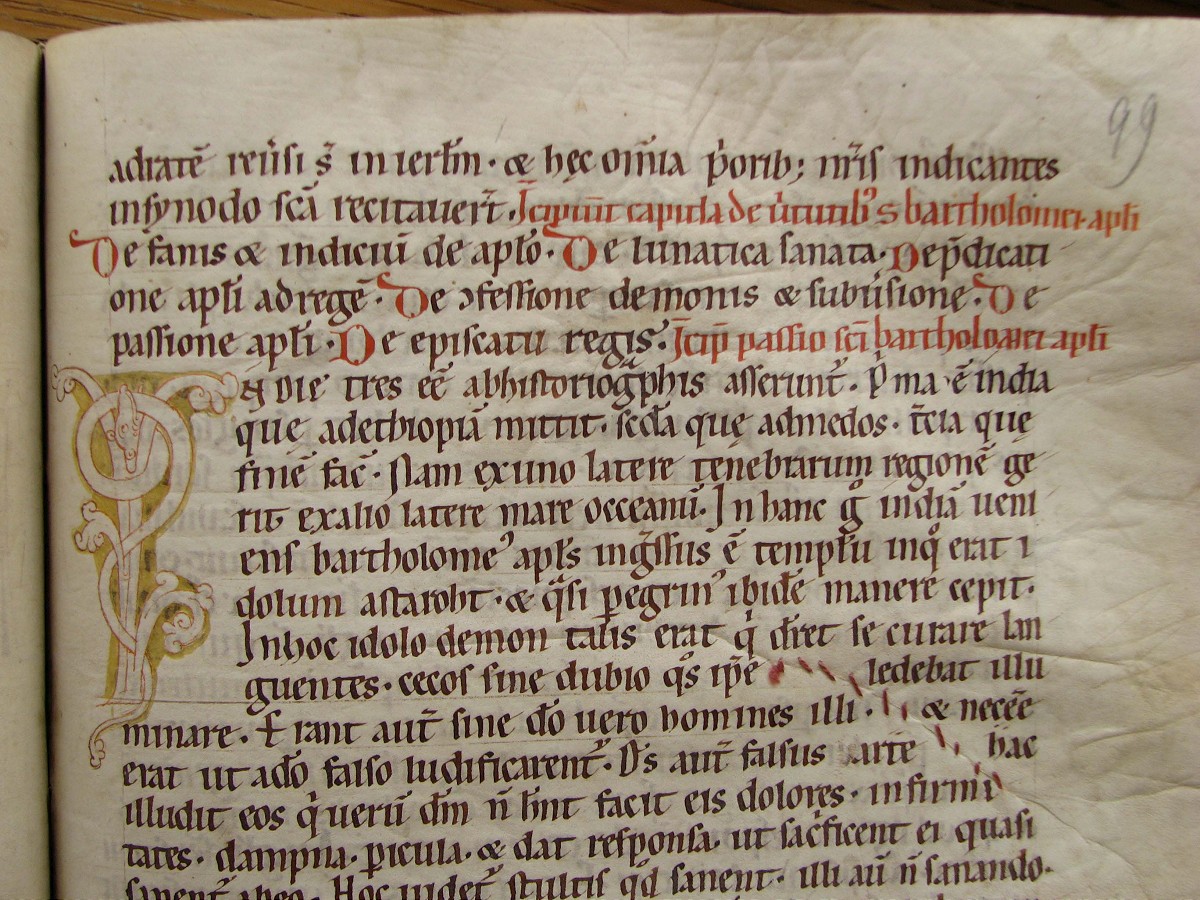 99
adiatē reūsi s̄ in ierlm̄ · & hęc om̄ia p̄orib; nr̄is indicantes
insynodo scā recitauer̄t · Īcipiūt capitla de ūtutib᾽ S bartholomei apl̄i
De fanis & indiciū de aplō · De lunatica sanata · Dep̄dicati
one apl̄i adregē · De ɔfessione demonis & subūsione · De
passione apl̄i · De episcatu regis · Īcip̄ passio scī bartholomei apl̄i
INDIE tres eē abhistoriogphis asserunt̄ · P̄ma ē india
que adethiopiā mittit · scd̄a quę admedos · t̄cia quę
finē fac̄ · Nam exuno latere tenebrarum regionē ge
rit exalio latere mare occeanū · In hanc g̊ indiā ueni
ens bartholome᾽ apl̄s inḡssus ē templū inq̊ erat i
dolum astaroht · & q̄si peregrin᾽ ibidē manere cepit ·
Inhoc idolo demon talis erat q̄ dic̄ret se curare lan
guentes · cecos sine dubio q̊s ip̄e ledebat illu
minare · Erant aut̄ sine dō uero homines illi · & necēe
erat ut adō falso ludificarent᾽ · D̄s aut̄ falsus arte hac
illudit eos q̄ uerū dm̄ n̄ hn̄t facit eis dolores · infirmi
tates · dampna · picula · & dat responsa · ut sac̄ficent ei quasi
sanent᾽ abeo · Hoc uidet᾽ stultis qd̄ sanent · illi aū n̄ sanando ·